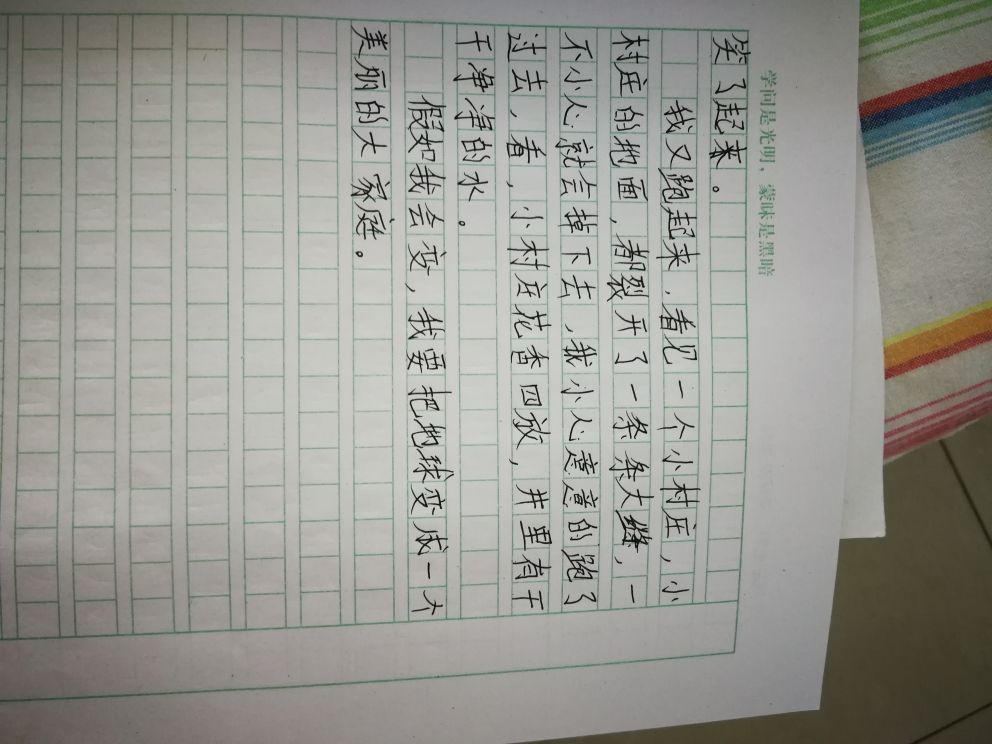 学问是光明，蒙昧是黑暗
笑了起来。
我又跑起来，看见一个小村庄，小
村庄的地面，都裂开了一条条大缝，一
不小心就会掉下去，我小心意意的跑了
过去，看，小村庄花香四放，井里有干
干净净的水。
假如我会变，我要把地球变成一个
美丽的大家庭。